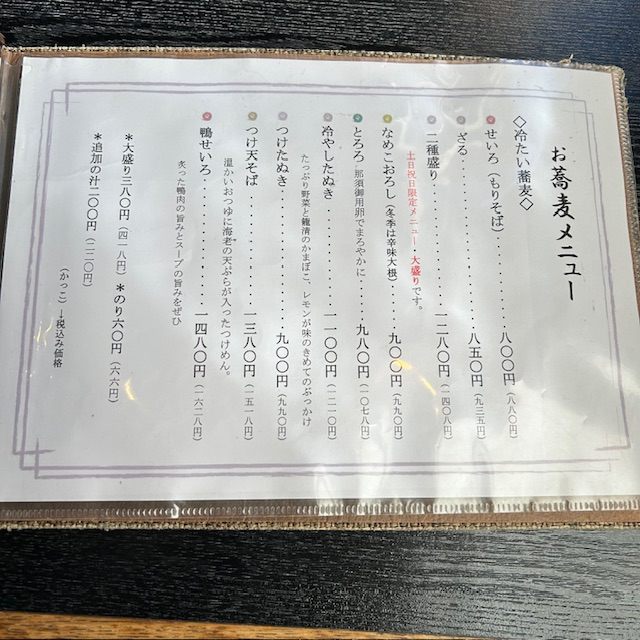 お蕎麦メニュー
◇冷たい蕎麦◇
せいろ（もりそば）・・・・・・・・・八〇〇円（八八〇円）
ざる・・・・・・・・・・・・・・・八五〇円（九三五円）
二種盛り・・・・・・・・・・・・・一二八〇円（一四〇八円）
土日祝日限定メニュー・大盛りです。
なめこおろし（冬季は辛味大根）・・・・・・九〇〇円（九九〇円）
とろろ 那須御用卵でまろやかに・・・・・・九八〇円（一〇七八円）
冷やしたぬき・・・・・・・・・・・一一〇〇円（一二一〇円）
たっぷり野菜と籠清のかまぼこ、レモンが味のきめてのぶっかけ
つけたぬき・・・・・・・・・・・・九〇〇円（九九〇円）
つけ天そば・・・・・・・・・・・・一三八〇円（一五一八円）
温かいおつゆに海老の天ぷらが入ったつけめん。
鴨せいろ・・・・・・・・・・・・・一四八〇円（一六二八円）
炙った鴨肉の旨みとスープの旨みをぜひ
＊大盛り三八〇円（四一八円） ＊のり六〇円（六六円）
＊追加の汁二〇〇円（二二〇円）
（かっこ）→税込み価格